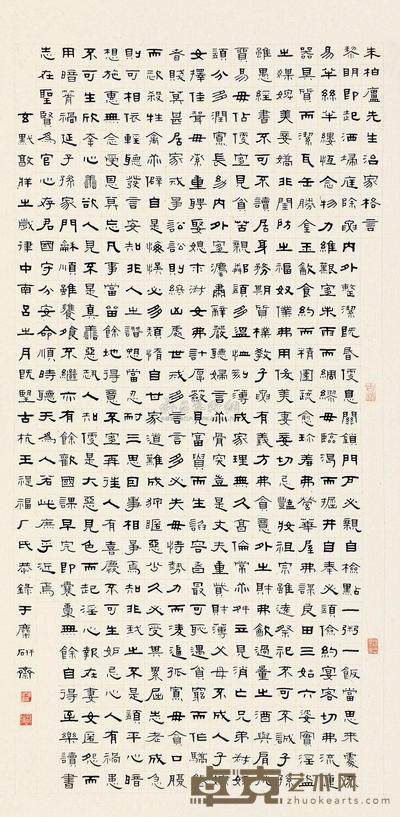 朱柏廬先生治家格言
黎明即起洒埽庭除要內外整潔既昏便息關鎖門戶必親自檢點一粥一飯當思來處不
易半絲半縷恆念物力維艱宜未雨而綢繆毋臨渴而掘井自奉必須儉約宴客切弗流連
器具質而潔瓦缶勝金玉飲食約而精園蔬愈珍羞弗營華屋弗謀良田三姑六婆實淫盜
之媒婢美妾嬌非閨房之福奴僕弗用俊美妻妾切忌豔裝祖宗雖遠祭祀不可不誠子孫
雖愚經書不可不讀居身務期質樸教子要有義方弗貪意外之財弗飲過量之酒與肩挑
貿易毋佔便宜見貧苦親鄰須加溫恤刻薄成家理無久享倫常乖舛立見消亡兄弟叔姪
須分多潤寡長幼內外宜法肅辭嚴聽婦言乖骨肉豈是丈夫重資財薄父母不成人子嫁
女擇佳壻毋索重聘娶媳求淑女弗計厚奩見富貴而生諂容者最可恥遇貧窮而作驕態
者賤莫甚居家戒爭訟訟則終凶處世戒多言言多必失毋恃勢力而凌逼孤寡毋貪口腹
而恣殺牲禽乖僻自是悔誤必多頹惰自甘家道難成狎昵惡少久必受其累屈志老成急
則可相依輕聽發言安知非人之譖愬當忍耐三思因事相爭焉知非我之不是須平心暗
想施惠弗念受恩莫忘凡事當留餘地得意不宜再往人有喜慶不可生妒忌心人有禍患
不可生欣幸心善欲人見不是真善惡恐人知便是大惡見色而起淫心報在妻女匿怨而
用暗箭禍延子孫家門龢順雖饔飧不繼亦有餘歡國課早完即囊橐無餘自得至樂讀書
志在聖賢爲官心存君國守分安命順時聽天爲人若此庶乎近焉
玄黓敦牂之歲律中南呂之月既望古杭王禔福厂氏恭錄于麋研齋
卓克艺术网
zhuokearts.com